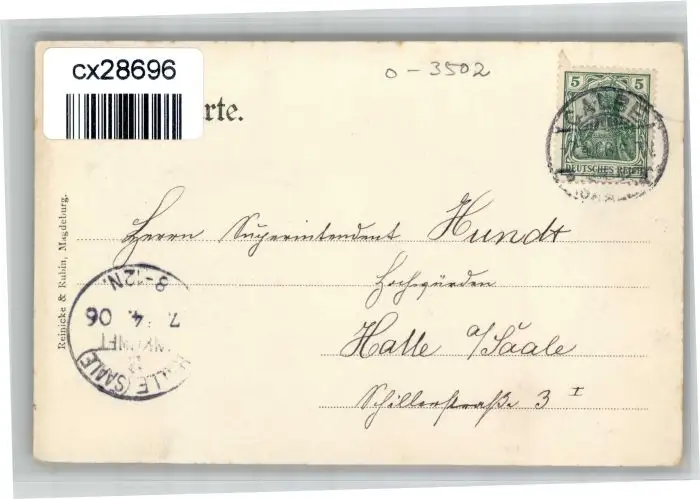 cx28696
o-3502
rte.
5 5
DEUTSCHES REICH
Herrn Superintendent Hundt
Hochwürden
Halle a/Saale
Schillerstraße 3 I
Reinicke & Rubin, Magdeburg.
HALLE (SAALE)
7. 4. 06
8-12N.